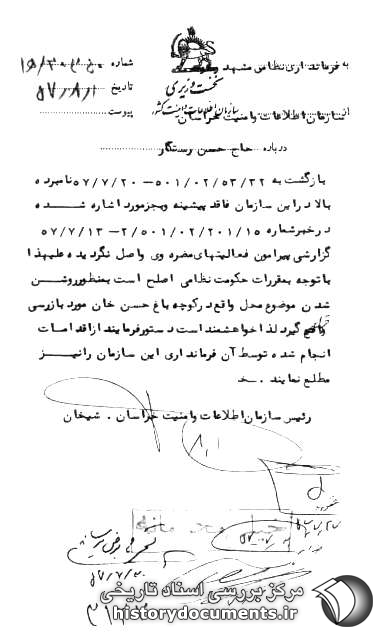 به فرمانداری نظامی مشهد
نخست وزیری
سازمان اطلاعات و امنیت کشور
شماره
تاریخ ۵۷/۸/۱
پیوست
از سازمان اطلاعات و امنیت خراسان
درباره حاج حسن رستگار
بازگشت به ۵۰۱/۰۲/۵۳/۳۲-۵۷/۷/۲۰ نامبرده
بالا در این سازمان فاقد پیشینه و بجز مورد اشاره شده
در خبر شماره ۲/۵۰۱/۰۲/۲۰۱/۱۵-۵۷/۷/۱۳
گزارشی پیرامون فعالیتهای مضره وی واصل نگردیده علیهذا
با توجه بمقررات حکومت نظامی اصلح است بمنظور روشن
شدن موضوع محل واقع در کوچه باغ حسن خان مورد بازرسی
واقع گیرد لذا خواهشمند است دستور فرمایند از اقدامات
انجام شده توسط آن فرمانداری این سازمان را نیز
مطلع نمایند .
رئیس سازمان اطلاعات و امنیت خراسان . شیخان
۸/۱
مرکز بررسی اسناد تاریخی
historydocuments.ir